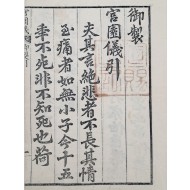 御製
官園儀引
夫其言絶悲者不長其情
至痛者如無小子今十五
年不死非不知死也荷